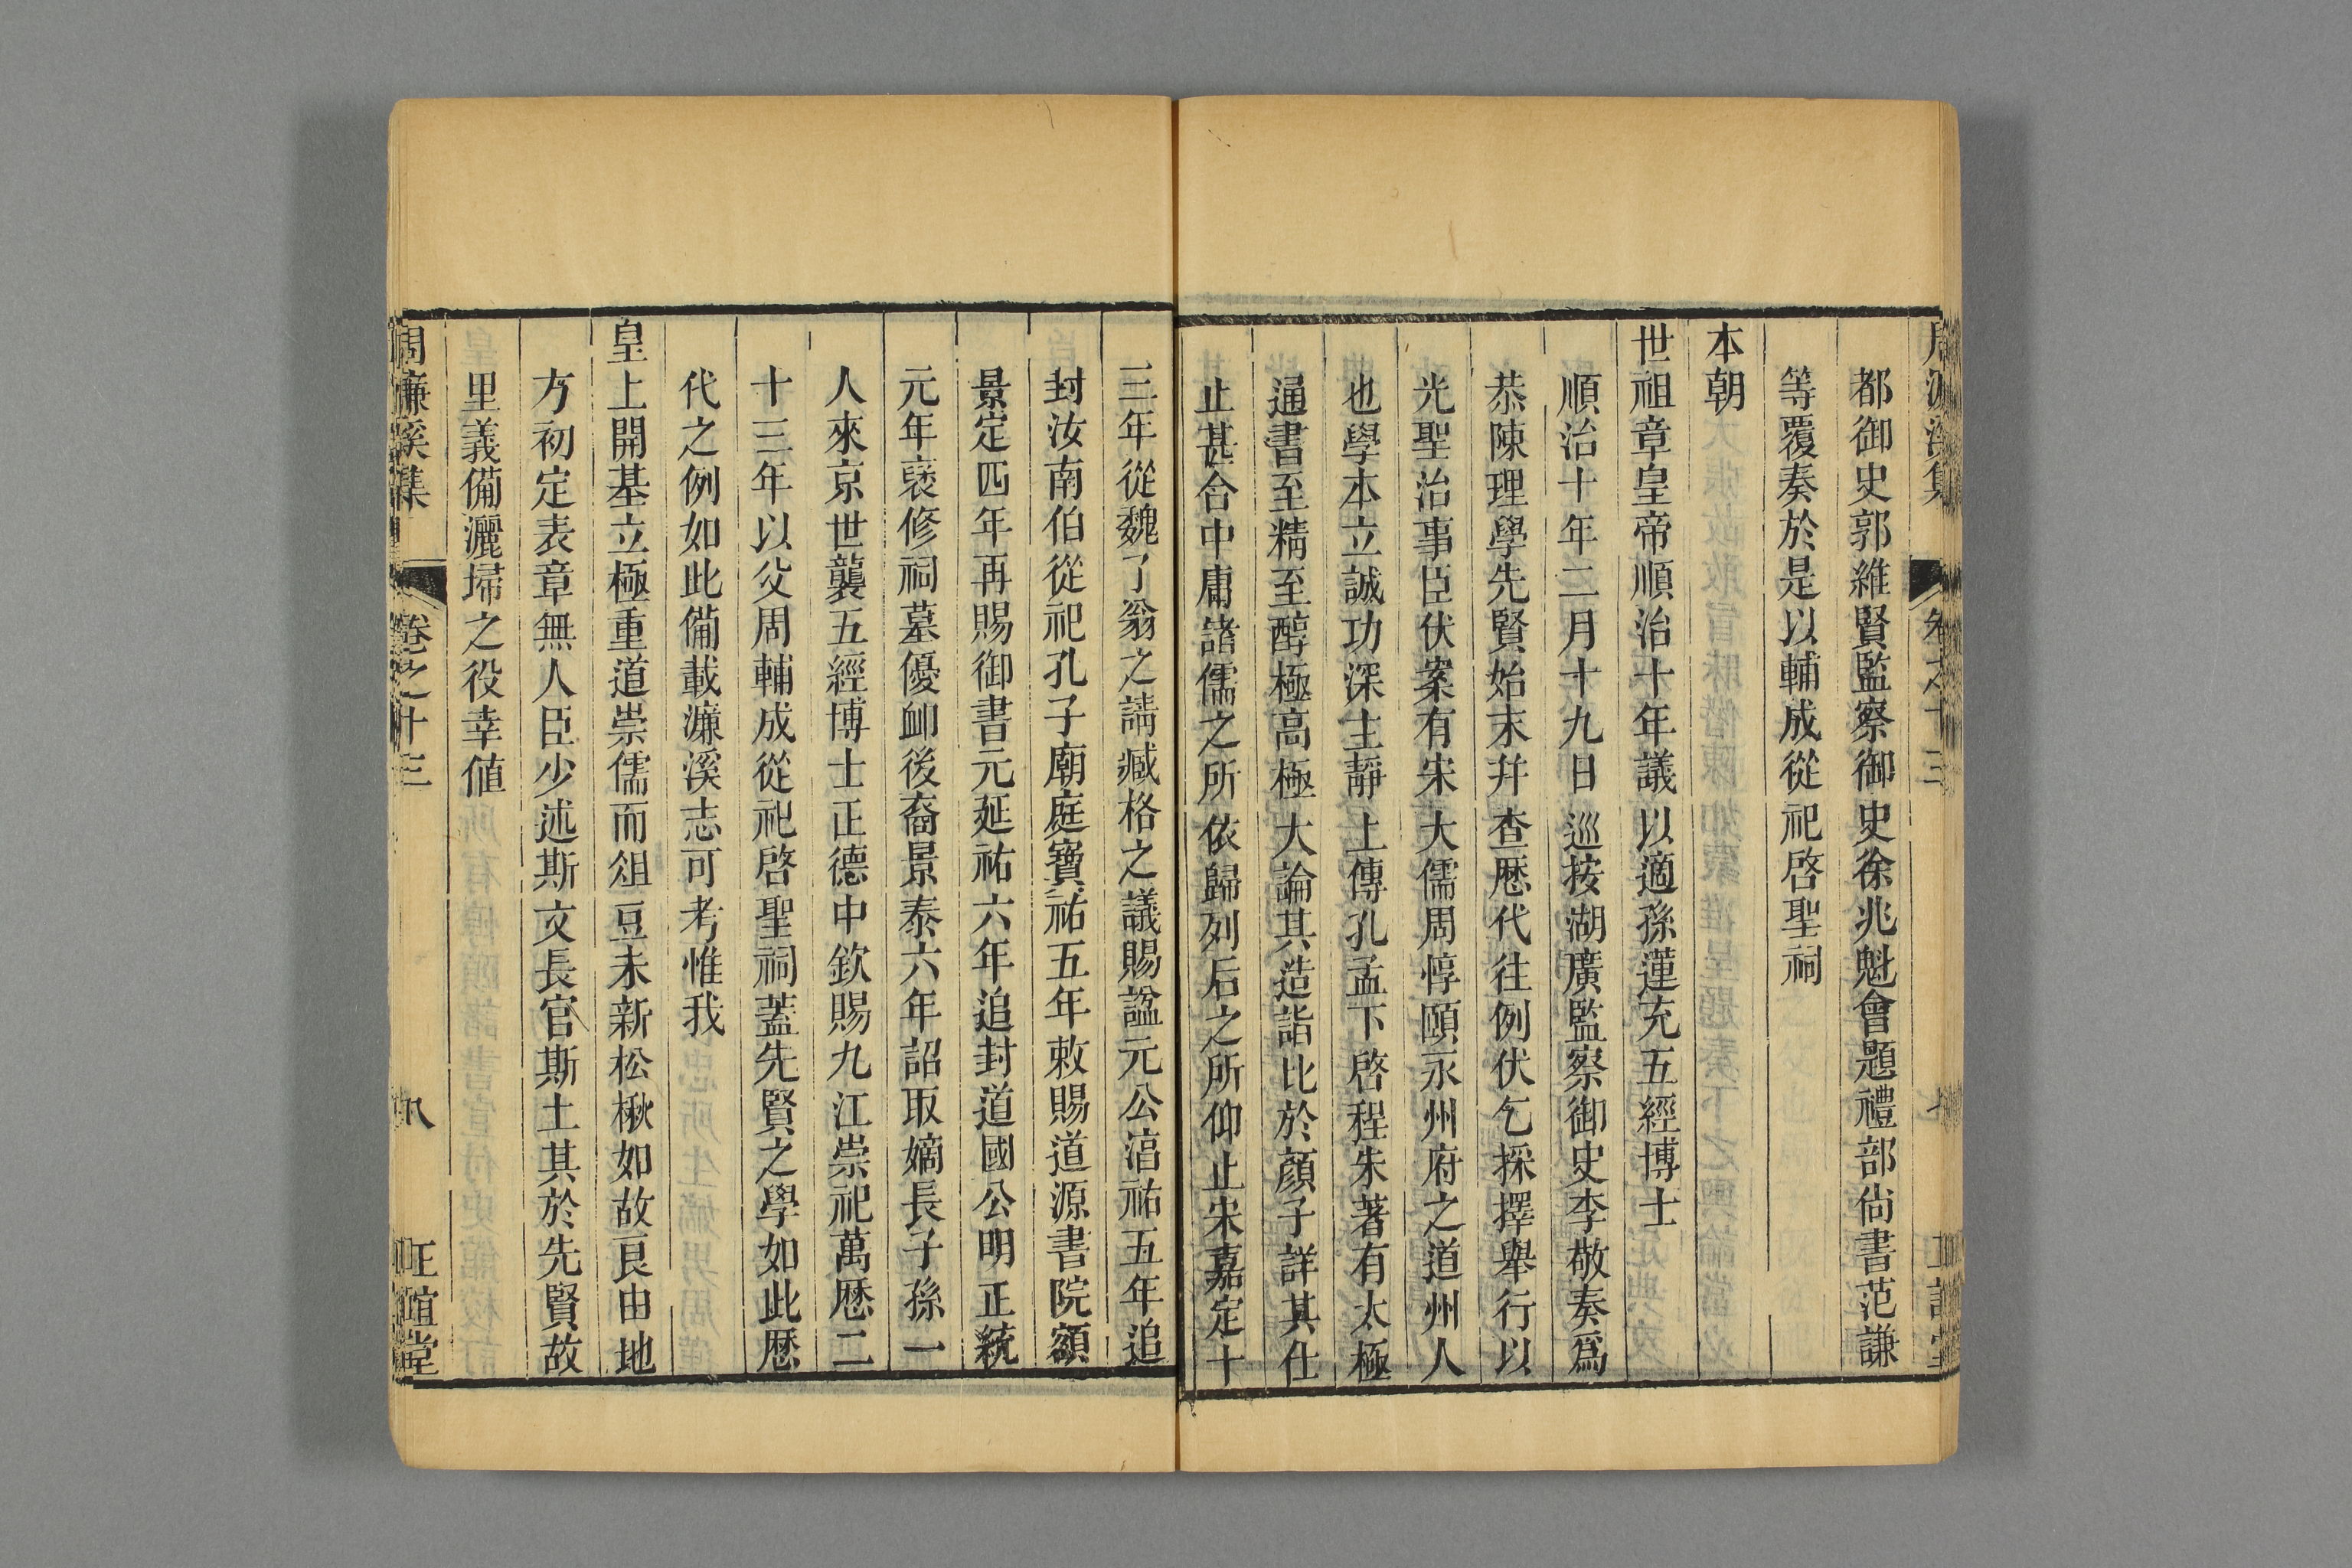 都御史郭維賢監察御史徐兆魁會題禮部尙書范謙
等覆奏於是以輔成從祀啓聖祠
本朝
世祖章皇帝順治十年議以適孫蓮充五經博士
順治十年二月十九日巡按湖廣監察御史李敬奏爲
恭陳理學先賢始末幷查歷代往例伏乞採擇舉行以
光聖治事臣伏案有宋大儒周惇頤永州府之道州人
也學本立誠功深主靜上傳孔孟下啓程朱著有太極
通書至精至醇極高極大論其造詣比於顏子詳其仕
止甚合中庸諸儒之所依歸列后之所仰止宋嘉定十
三年從魏了翁之請臧格之議賜諡元公淳祐五年追
封汝南伯從祀孔子廟庭寶祐五年敕賜道源書院額
景定四年再賜御書元延祐六年追封道國公明正統
元年襃修祠墓優卹後裔景泰六年詔取嫡長子孫一
人來京世襲五經博士正德中欽賜九江崇祀萬歷二
十三年以父周輔成從祀啓聖祠蓋先賢之學如此歷
代之例如此備載濂溪志可考惟我
皇上開基立極重道崇儒而俎豆未新松楸如故良由地
方初定表章無人臣少述斯文長官斯土其於先賢故
里義備灑埽之役幸値
周濂溪集 卷之十三 八 正誼堂